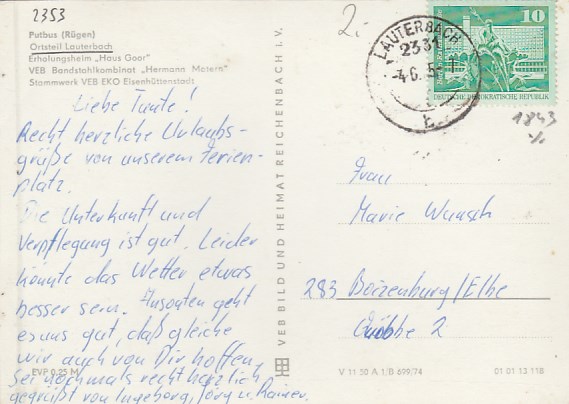 2353
Putbus (Rügen)
Ortsteil Lauterbach
Erholungsheim „Haus Goor"
VEB Bandstahlkombinat „Hermann Matern"
Stammwerk VEB EKO Eisenhüttenstadt
Liebe Tante!
Recht herzliche Urlaubs-
grüße von unserem Ferien-
platz.
Die Unterkunft und
Verpflegung ist gut. Leider
könnte das Wetter etwas
besser sein. Ansonsten geht
es uns gut, daß gleiche
wir auch von Dir hoffen.
Sei nochmals recht herzlich
gegrüßt von Ingeborg, Jörg u. Rainer.
EVP 0,25 M
VEB BILD UND HEIMAT REICHENBACH I. V.
2.
LAUTERBACH
2331
10
DEUTSCHE DEMOKRATISCHE REPUBLIK
1843
Frau
Marie Wunsch
283 Boizenburg/Elbe
2
V 11 50 A 1/B 699/74
01 01 13 118